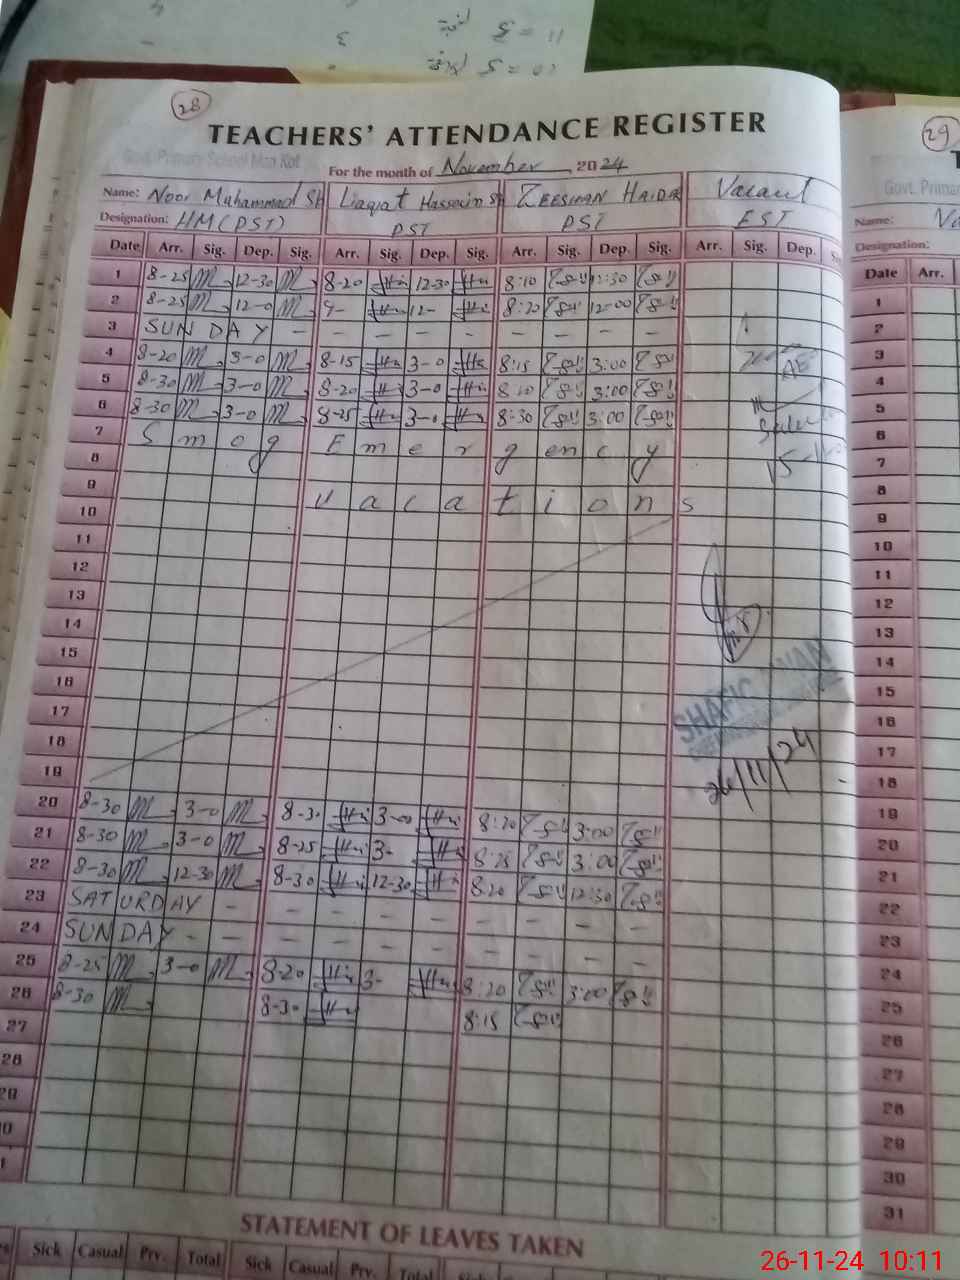 28
TEACHERS' ATTENDANCE REGISTER
Govt. Primary School Man Kot
For the month of November 2024
Name: Noor Muhammad Sh Liaqat Hassain Sh ZEESHAN HAIDAR Vacant
Designation: HM(PST) PST PST EST
Date Arr. Sig. Dep. Sig. Arr. Sig. Dep. Sig. Arr. Sig. Dep. Sig. Arr. Sig. Dep.
1 8-25 12-30 8-20 12-30 8:10 12:30
2 8-25 12-0 9- 12- 8:20 12:00
3 SUNDAY - - - - - - - - -
4 8-20 3-0 8-15 3-0 8:15 3:00
5 8-30 3-0 8-20 3-0 8:20 3:00
6 8-30 3-0 8-25 3-0 8:30 3:00
7 Smog Emergency
8
9 Vacations
10
11
12
13
14
15
16
17
18
19
20 8-30 3-0 8-30 3-00 8:20 3:00
21 8-30 3-0 8-25 3- 8:25 3:00
22 8-30 12-30 8-30 12-30 8:20 12:30
23 SATURDAY - - - - - - - -
24 SUNDAY - - - - - - - - -
25 8-25 3-0 8-20 3- 8:20 3:00
26 8-30 8-30 8:15
27
28
29
AE
SHAFIQ
26/11/24
STATEMENT OF LEAVES TAKEN
Sick Casual Prv. Total Sick Casual Prv. Total Sick
29
Govt. Primary
Name: Va
Designation:
Date Arr.
1
2
3
4
5
6
7
8
9
10
11
12
13
14
15
16
17
18
19
20
21
22
23
24
25
26
27
28
29
30
31
26-11-24 10:11